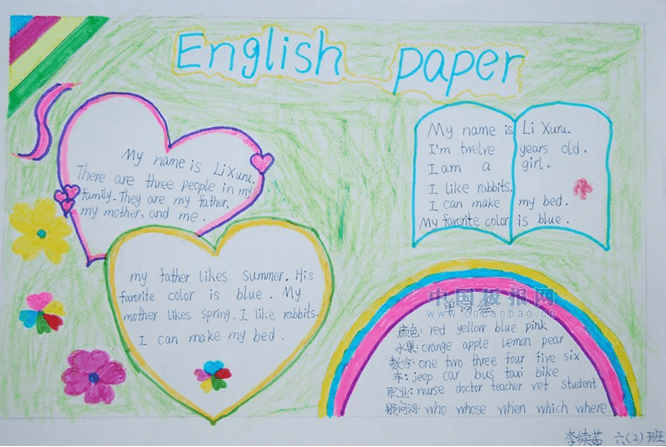 English paper
My name is Li Xuru.
There are three people in my
family. They are my father,
my mother, and me.
my father likes summer. His
favorite color is blue. My
mother likes spring. I like rabbits.
I can make my bed.
My name is Li Xuru.
I'm twelve years old.
I am a girl.
I like rabbits.
I can make my bed.
My favorite color is blue.
中国板报网
颜色: red yellow blue pink
水果: orange apple lemon pear
数字: one two three four five six
车: jeep car bus taxi bike
职业: nurse doctor teacher vet student
疑问词: who whose when which where
六(2)班